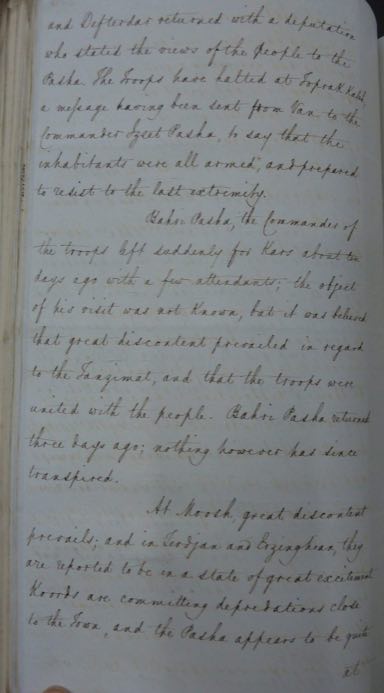 and Defterdar returned with a deputation
who stated the views of the People to the
Pasha. The Troops have halted at Toprak Kaleh,
a message having been sent from Van to the
Commander Izset Pasha, to say that the
inhabitants were all armed, and prepared
to resist to the last extremity.
Bahri Pasha, the Commander of
the troops left suddenly for Kars about ten
days ago with a few attendants; the object
of his visit was not known, but it was believed
that great discontent prevailed in regard
to the Tanzimat, and that the troops were
united with the people. Bahri Pasha returned
three days ago; nothing however has since
transpired.
At Moosh, great discontent
prevails; and in Terdjan and Erzinghean, they
are reported to be in a state of great excitement
Koords are committing depredations close
to the Town, and the Pasha appears to be quite
at